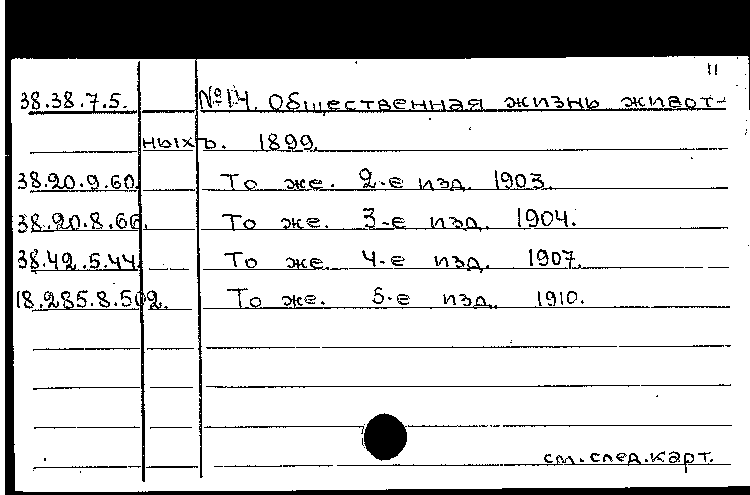 11
38.38.7.5. №14. Общественная жизнь живот-
ныхъ. 1899.
38.20.9.60. То же. 2-е изд. 1903.
38.20.8.66. То же. 3-е изд. 1904.
38.42.5.44. То же. 4-е изд. 1907.
18.285.8.502. То же. 5-е изд. 1910.
см.след.карт.